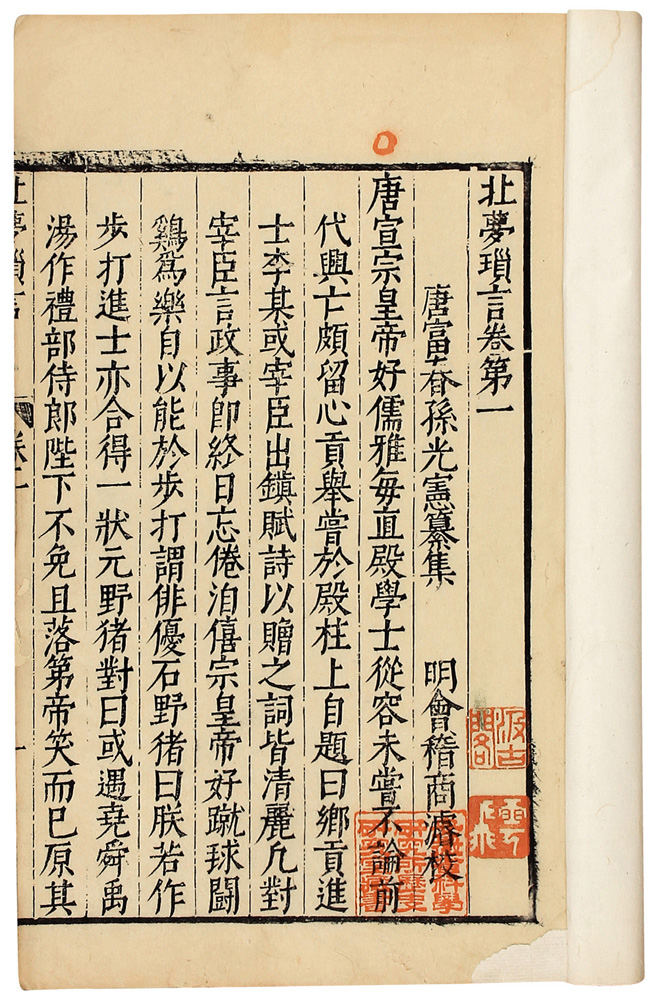 北夢瑣言卷第一
唐富春孫光憲纂集　明會稽商濬校
唐宣宗皇帝好儒雅每直殿學士從容未嘗不論前
代興亡頗留心貢舉嘗於殿柱上自題曰鄉貢進
士李某或宰臣出鎮賦詩以贈之詞皆清麗凡對
宰臣言政事卽終日忘倦洎僖宗皇帝好蹴球鬪
鷄爲樂自以能於步打謂俳優石野猪曰朕若作
步打進士亦合得一狀元野猪對曰或遇堯舜禹
湯作禮部侍郎陛下不免且落第帝笑而已原其
北夢瑣言
卷一
一
汲古閣